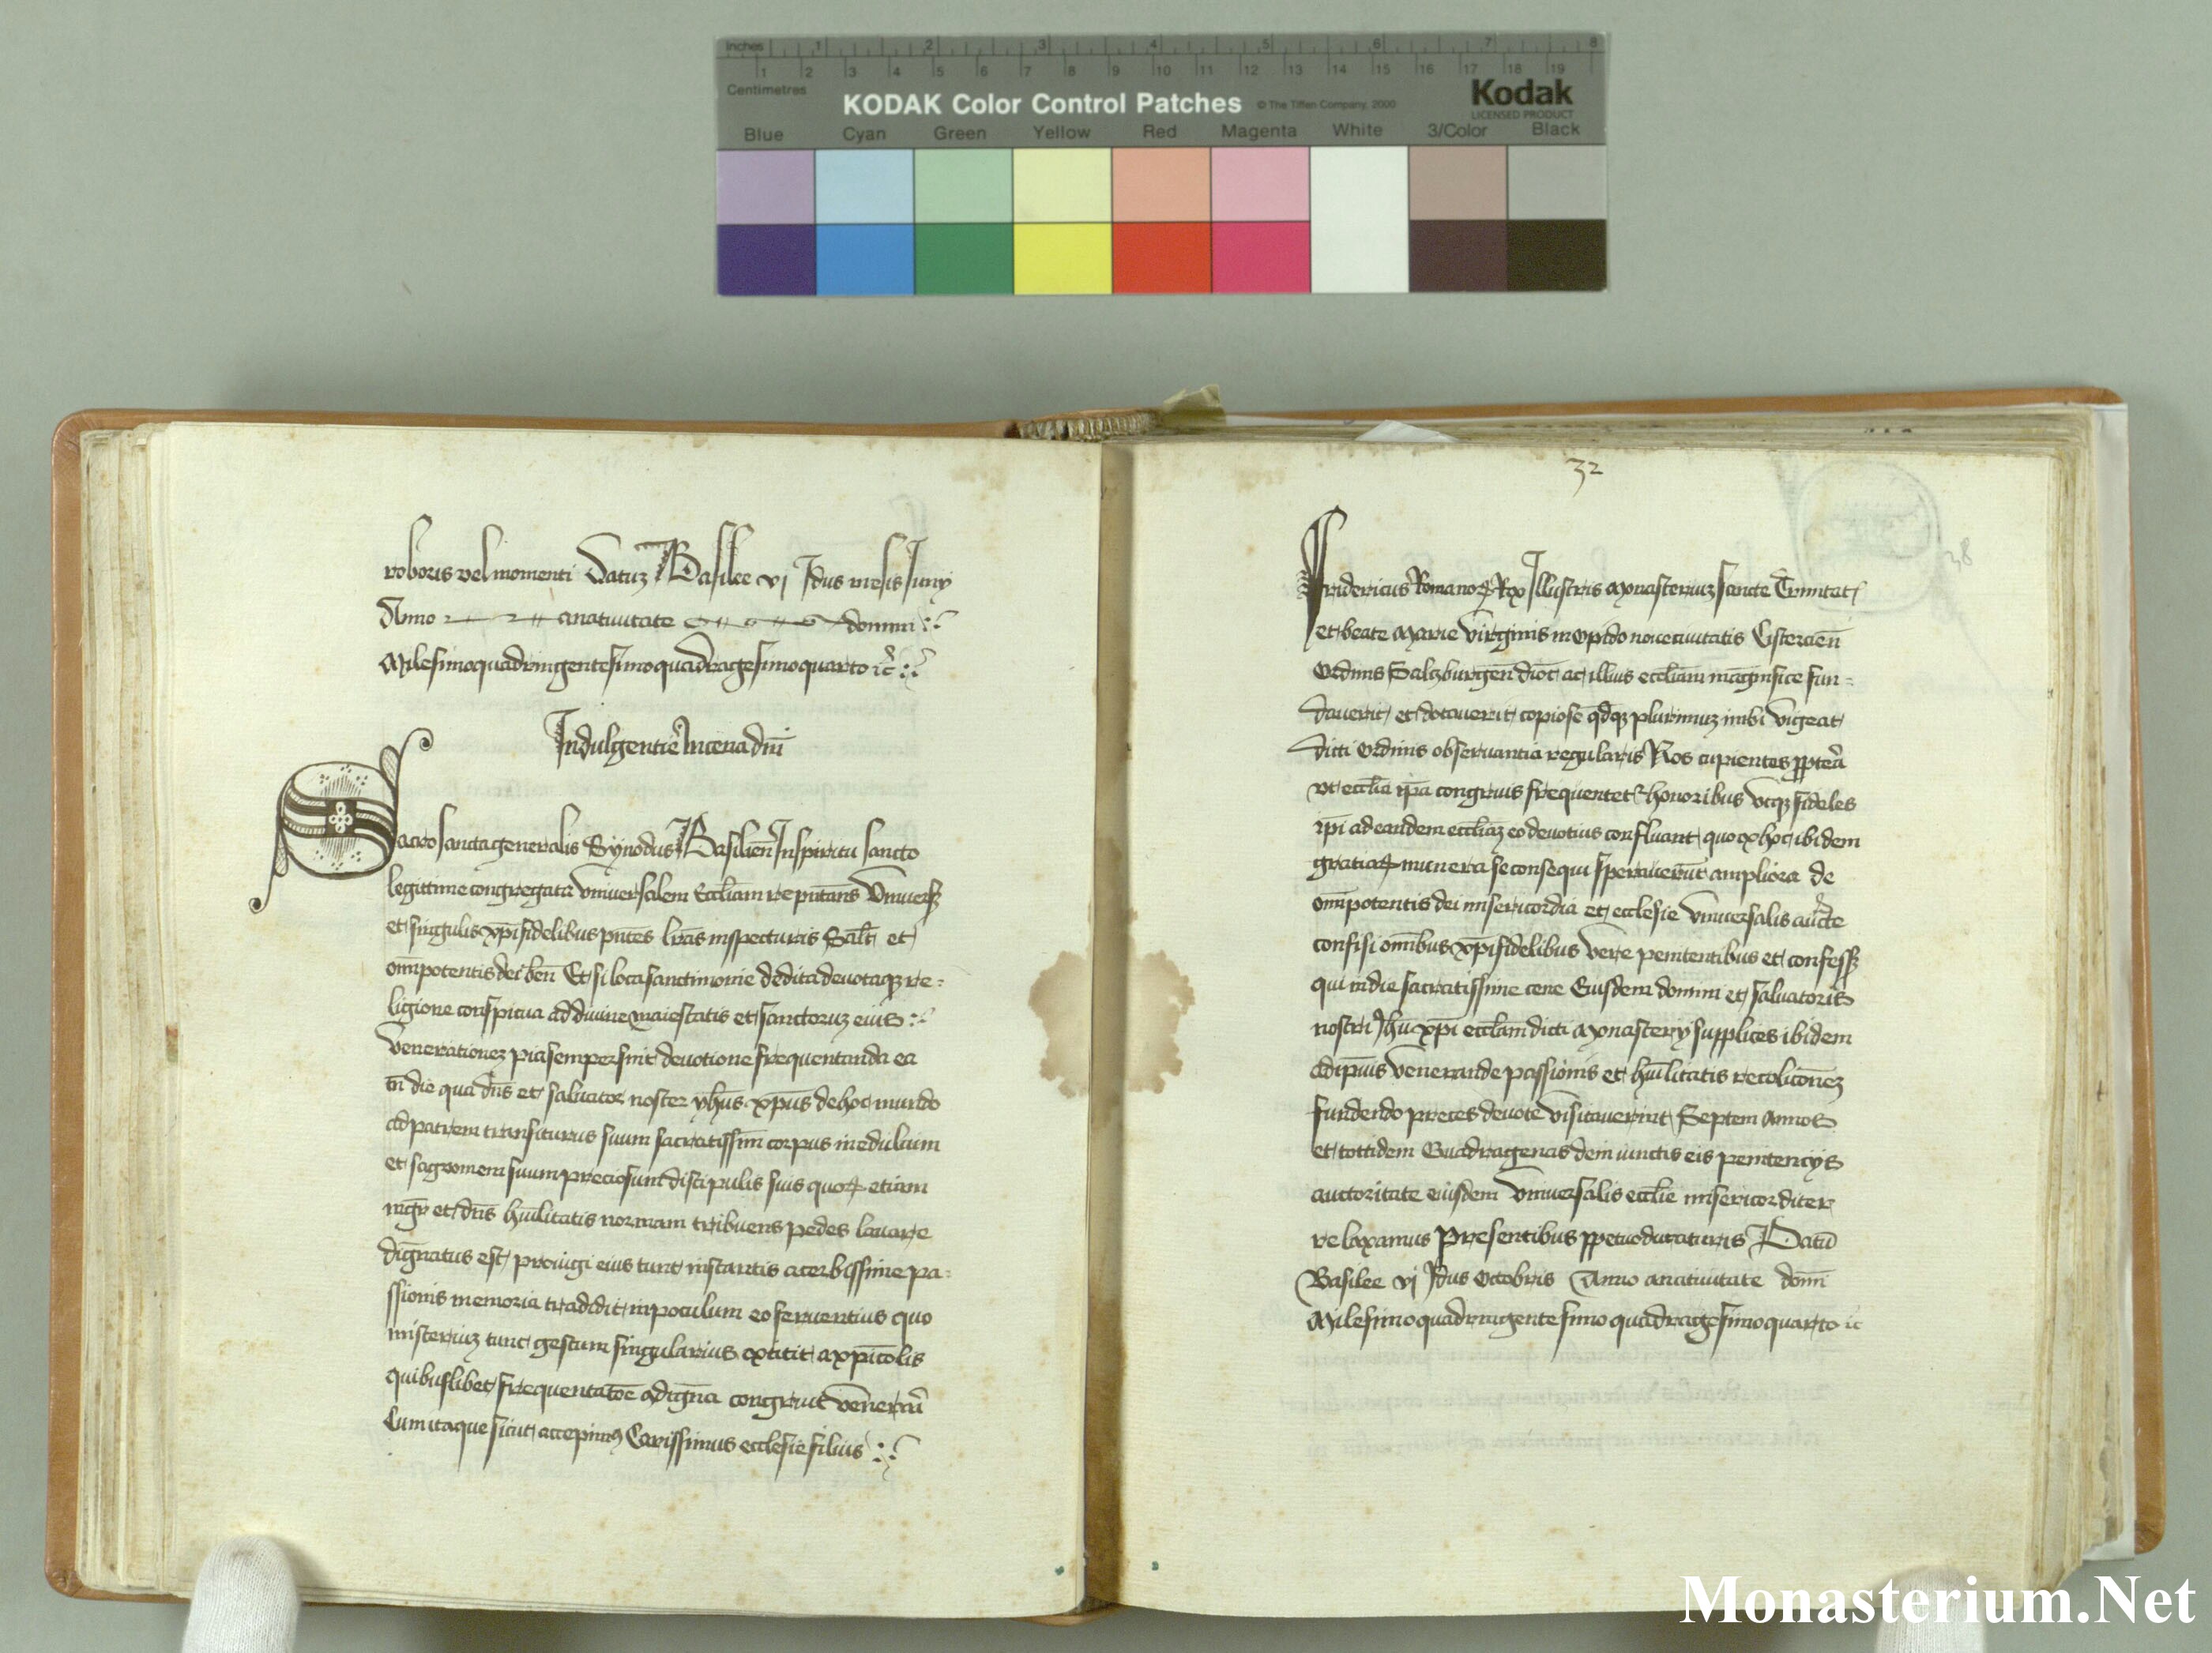 Inches 1 2 3 4 5 6 7 8
1 2 3 4 5 6 7 8 9 10 11 12 13 14 15 16 17 18 19
Centimetres
KODAK Color Control Patches © The Tiffen Company, 2000 Kodak
LICENSED PRODUCT
Blue Cyan Green Yellow Red Magenta White 3/Color Black
roboris vel momenti Datuz Basilee vj Idus mēsis Iunij
Anno anatiuitate domini
Milesimoquadringentesimoquadragesimoquarto ꝛc̄
Indulgentie In cena dni
Sacrosancta generalis Synodus Basilien̄ In spiritu sancto
legittime congregata vniuersalem Eccl̄iam rep̄ntans Vniuersꝭ
et singulis xp̄ifidelibus pn̄tes lr̄as inspecturis Sal̄t et
om̄ipotentis dei ben̄ Et si loca sanctimonie dedita deuotaqꝫ re-
ligione conspicua ad diuine maiestatis et sanctoruz eius
venerationez pia semper sint deuotione frequentanda ea
tn̄ die qua dn̄s et saluator noster yh̄us xp̄us de hoc mundo
ad patrem transiturus suum sacratissim̄ corpus in edulium
et sagwomem suum preciosum discipulis suis quoꝝ etiam
mgr̄ et dn̄s hūilitatis normam tribuens pedes lauare
dignatus est, pro iugi eius tunc instantis acerbissime pa-
ssionis memoria tradidit in poculum eo feruentius quo
misteriuz tunc gestum singularius extitit a xp̄icolis
quibuslibet frequentatōe a digna congruit venerari
Cum itaque sicut accepimꝰ Carissimus ecclesie filius
32
38
Fridericus Romanoꝝ Rex Illustris Monasteriuz sancte Trinitat
et beate Marie virginis in opido noue ciuitatis Cistercien̄
Ordinis Salczburgen̄ dioc̄ ac illius eccl̄iam magnifice fun-
dauerit et dotauerit copiose qd̄qꝫ plurimuz inibi vigeat
dicti ordinis obseruantia regularis Nos cupientes ppterā
vt eccl̄ia ip̄a congruis frequentetᵉ honoribus vtqꝫ fideles
ip̄i ad eandem eccl̄iaꝫ eo deuotius confluant, quo ex hoc ibidem
gratiaꝝ munera se consequi sperauerūt ampliora de
om̄ipotentis dei misericordia et ecclesie vniuersalis auctᵉ
confisi om̄ibus xp̄ifidelibus vere penitentibus et confessꝭ
qui in die sacratissime cene Eiusdem domini et saluatoris
nostri Ih̄u xp̄i eccl̄iam dicti Monasterij supplices ibidem
adip̄ius venerande passionis et hūilitatis recolicōnez
fundendo preces deuote visitauerint Septem annos
et tottidem Quadragenas de iniunctis eis penitencijs
auctoritate eiusdem vniuersalis eccl̄ie misericorditer
relaxamus Presentibus ppetuo duraturis Datū
Basilee vj Idus Octobris Anno anatiuitate domī
Milesimo quadringentesimo quadragesimoquarto ꝛc
Monasterium.Net